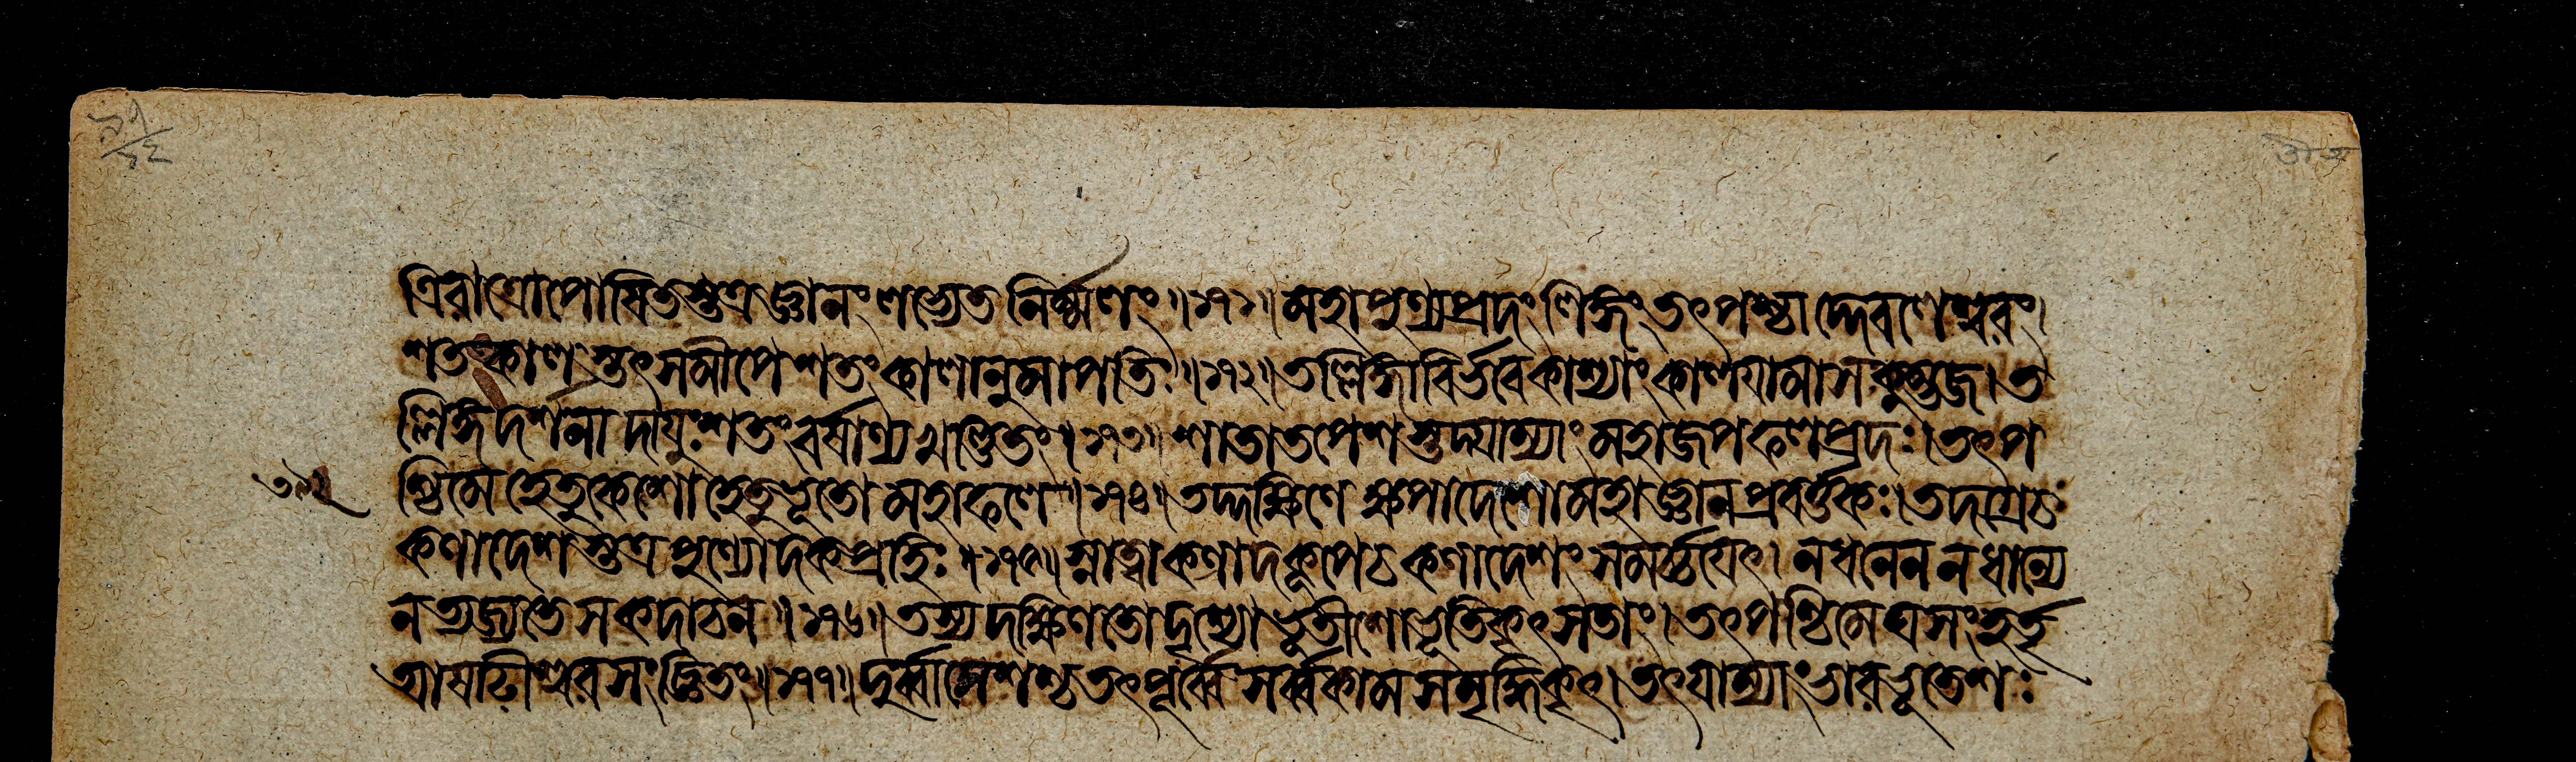 ত্রিরাত্রোপোষিতস্তত্রজ্ঞানংলভ্যেতনির্ম্মলং॥১৭১॥মহাপুণ্যপ্রদংলিঙ্গংতৎপশ্চাদ্দেবলেশ্বরং।
শতকালস্তৎসমীপেশতংকালানুমাপতিঃ॥১৭২॥তল্লিঙ্গাবির্ভবেকাশ্যাংকালয়ামাসকুম্ভজ।ত
ল্লিঙ্গদর্শনাদায়ুঃশতংবর্ষাণ্যখণ্ডিতং॥১৭৩॥শাতাতপেশস্তদ্যাম্যাংমহাজপফলপ্রদঃ।তৎপ
শ্চিমেহেতুকেশোহেতুভূতোমহাফলে॥১৭৪॥তদ্দক্ষিণেক্ষপাদেশোমহাজ্ঞানপ্রবর্ত্তকঃ।তদগ্রেচ
কণাদেশস্তত্রপুণ্যোদকপ্রহিঃ॥১৭৫॥স্নাত্বাকণাদকূপেচকণাদেশংসমর্চ্চয়েৎ।নধনেননধান্যে
নত্যজ্যতেসকদাচন॥১৭৬॥তস্যদক্ষিণতোদৃশ্যোভূতীশোভূতিকৃৎসতাং।তৎপশ্চিমেঘসংহর্তৃ
আষাঢ়ীশ্বরসংজ্ঞিতং॥১৭৭॥দুর্ব্বাসেশশ্চতৎপূর্ব্বেসর্ব্বকামসমৃদ্ধিকৃৎ।তৎযাম্যাংভারভূতেশঃ